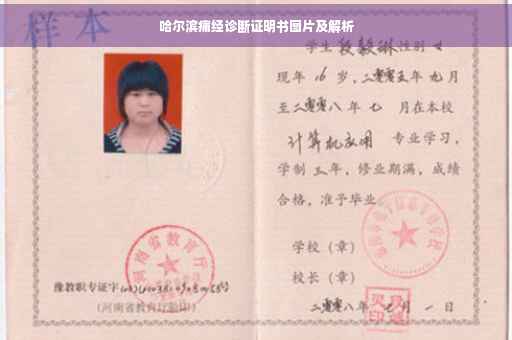 哈尔滨痛经诊断证明书图片及解析
样本
学生段毅琳性别女
现年16岁,二零零五年九月
至二零零八年七月在本校
计算机应用 专业学习,
学制三年,修业期满,成绩
合格,准予毕业
学校(章)
校长(章)
二零零八年七月一日
河南省教育厅
豫教职专证字
(河南省教育厅验印)